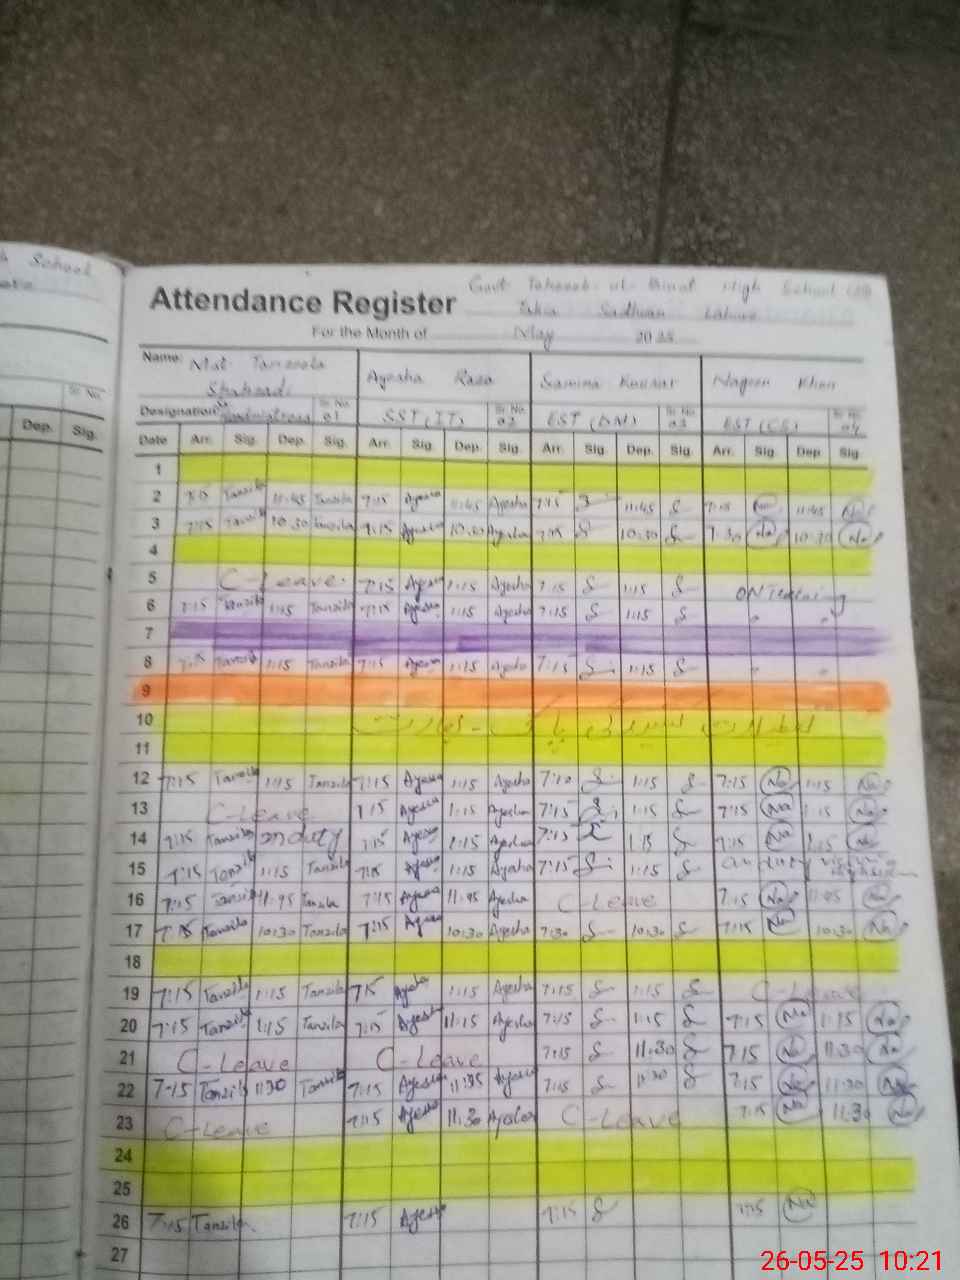 School
Sr. No.
Dep. Sig.
Govt. Tehzeeb-ul-Binat High School
Attendance Register Lahore
For the Month of May 20 25
Name: Mst. Tanzeela Ayesha Raza Samina Kausar Nageen Khan
Shahzadi
Designation: 01 SST (IT) Sr. No. 02 EST Sr. No. 03 EST Sr. No. 04
Date Arr. Sig. Dep. Sig. Arr. Sig. Dep. Sig. Arr. Sig. Dep. Sig. Arr. Sig. Dep. Sig.
1
2 7:15 Tanzila 11:45 Tanzila 7:15 Ayesha 11:45 Ayesha 7:15 S 11:45 S 7:15 Na 11:45 Na
3 7:15 Tanzila 10:30 Tanzila 7:15 Ayesha 10:30 Ayesha 7:15 S 10:30 S 7:30 Na 10:30 Na
4
5 C-Leave. 7:15 Ayesha 1:15 Ayesha 7:15 S 1:15 S ON Training
6 7:15 Tanzila 1:15 Tanzila 7:15 Ayesha 1:15 Ayesha 7:15 S 1:15 S "
7
8 7:15 Tanzila 1:15 Tanzila 7:15 Ayesha 1:15 Ayesha 7:15 S 1:15 S " "
9
10
11
12 7:15 Tanzila 1:15 Tanzila 7:15 Ayesha 1:15 Ayesha 7:10 S 1:15 S 7:15 Na 1:15 Na
13 C-Leave 7:15 Ayesha 1:15 Ayesha 7:15 S 1:15 S 7:15 Na 1:15 Na
14 7:15 Tanzila on duty 7:15 Ayesha 1:15 Ayesha 7:15 S 1:15 S 7:15 Na 1:15 Na
15 7:15 Tanzila 1:15 Tanzila 7:15 Ayesha 1:15 Ayesha 7:15 S 1:15 S on duty
16 7:15 Tanzila 11:45 Tanzila 7:15 Ayesha 11:45 Ayesha C-Leave 7:15 Na 11:45 Na
17 7:15 Tanzila 10:30 Tanzila 7:15 Ayesha 10:30 Ayesha 7:30 S 10:30 S 7:15 Na 10:30 Na
18
19 7:15 Tanzila 1:15 Tanzila 7:15 Ayesha 1:15 Ayesha 7:15 S 1:15 S C-Leave
20 7:15 Tanzila 1:15 Tanzila 7:15 Ayesha 11:15 Ayesha 7:15 S 1:15 S 7:15 Na 1:15 Na
21 C-Leave C-Leave 7:15 S 11:30 S 7:15 Na 11:30 Na
22 7:15 Tanzila 11:30 Tanzila 7:15 Ayesha Ayesha 7:15 S 11:30 S 7:15 Na 11:30 Na
23 C-Leave 7:15 Ayesha 11:30 Ayesha C-Leave 7:15 Na 11:30 Na
24
25
26 7:15 Tanzila 7:15 Ayesha 7:15 S 7:15 Na
27
26-05-25 10:21